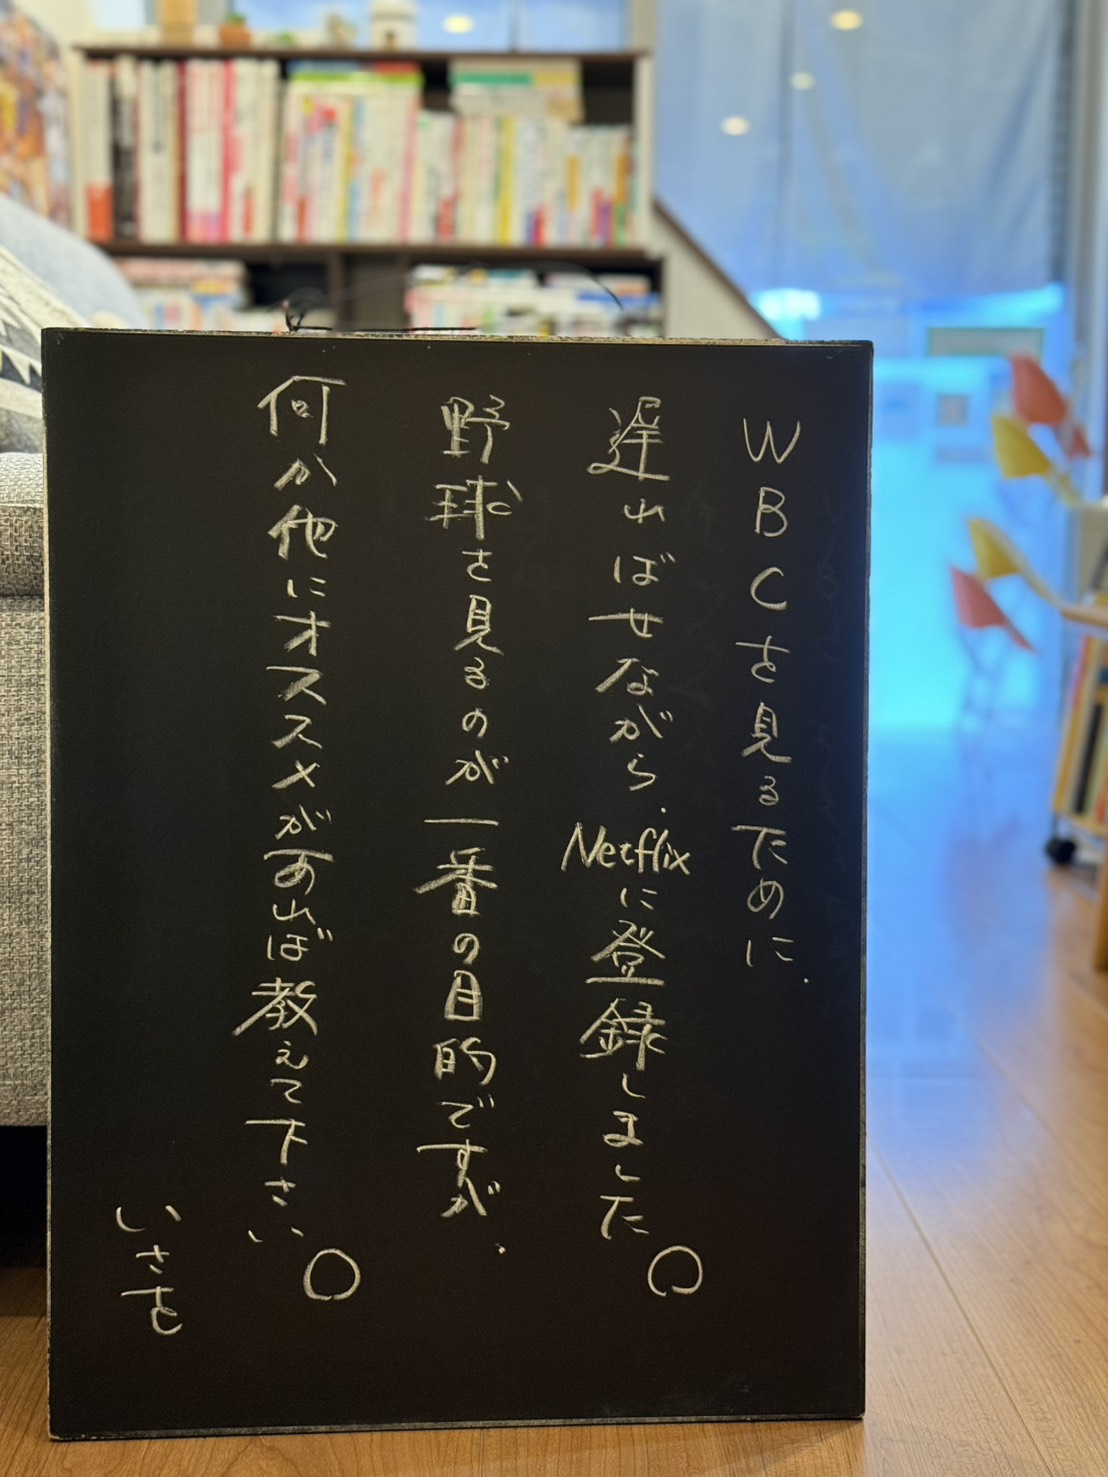 WBCを見るために、
遅ればせながら、Netflixに登録しました。
野球を見るのが一番の目的ですが、
何か他にオススメがあれば教えて下さい。
いさを